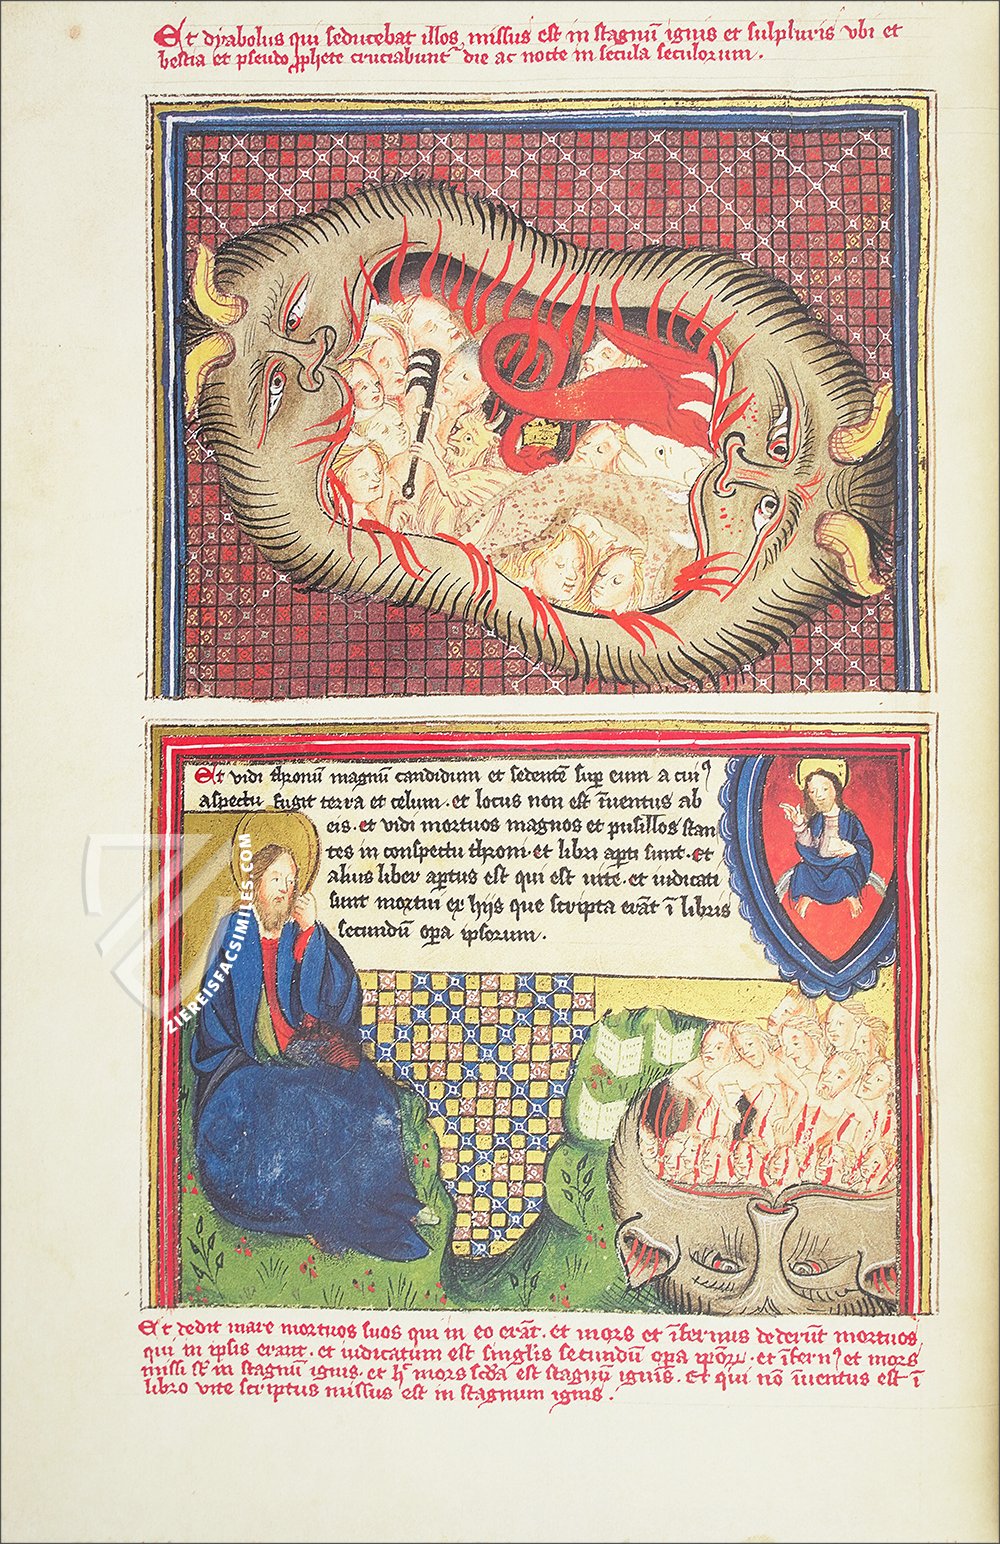 Et dyabolus qui seducebat illos, missus est in stagnū ignis et sulphuris vbi et
bestia et pseudo pphete cruciabunt die ac nocte in secula seculorum.
Et vidi thronū magnū candidum et sedentē sup eum a cui⁹
aspectu fugit terra et celum. et locus non est īuentus ab
eis. et vidi mortuos magnos et pusillos stan
tes in conspectu throni. et libri apti sunt. et
alius liber aptus est qui est uite. et iudicati
sunt mortui ex hijs que scripta erāt ī libris
secundū opa ipsorum.
ZIEREISFACSIMILES.COM
Et dedit mare mortuos suos qui in eo erāt. et mors et īfernus dederūt mortuos,
qui in ipsis erant. et iudicatum est singlis secundū opa ipoꝝ. et īfern⁹ et mors
missi st in stagnū ignis. et h mors scda est stagnū ignis. Et qui nō īuentus est ī
libro vite scriptus missus est in stagnum ignis.